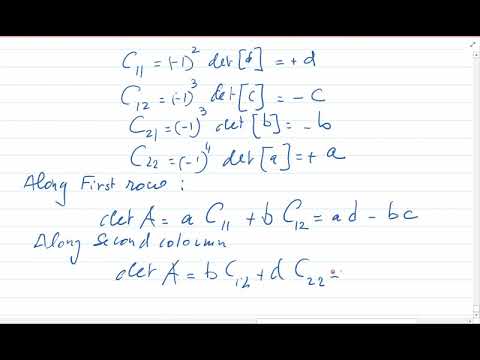 C₁₁ = (-1)² det [d] = + d
C₁₂ = (-1)³ det [c] = - c
C₂₁ = (-1)³ det [b] = - b
C₂₂ = (-1)⁴ det [a] = + a
Along First row :
det A = a C₁₁ + b C₁₂ = a d - b c
Along Second coloumn
det A = b C₁₂ + d C₂₂ =